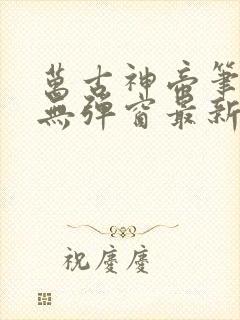 萬古神帝筆
無彈窗最新
祝慶慶